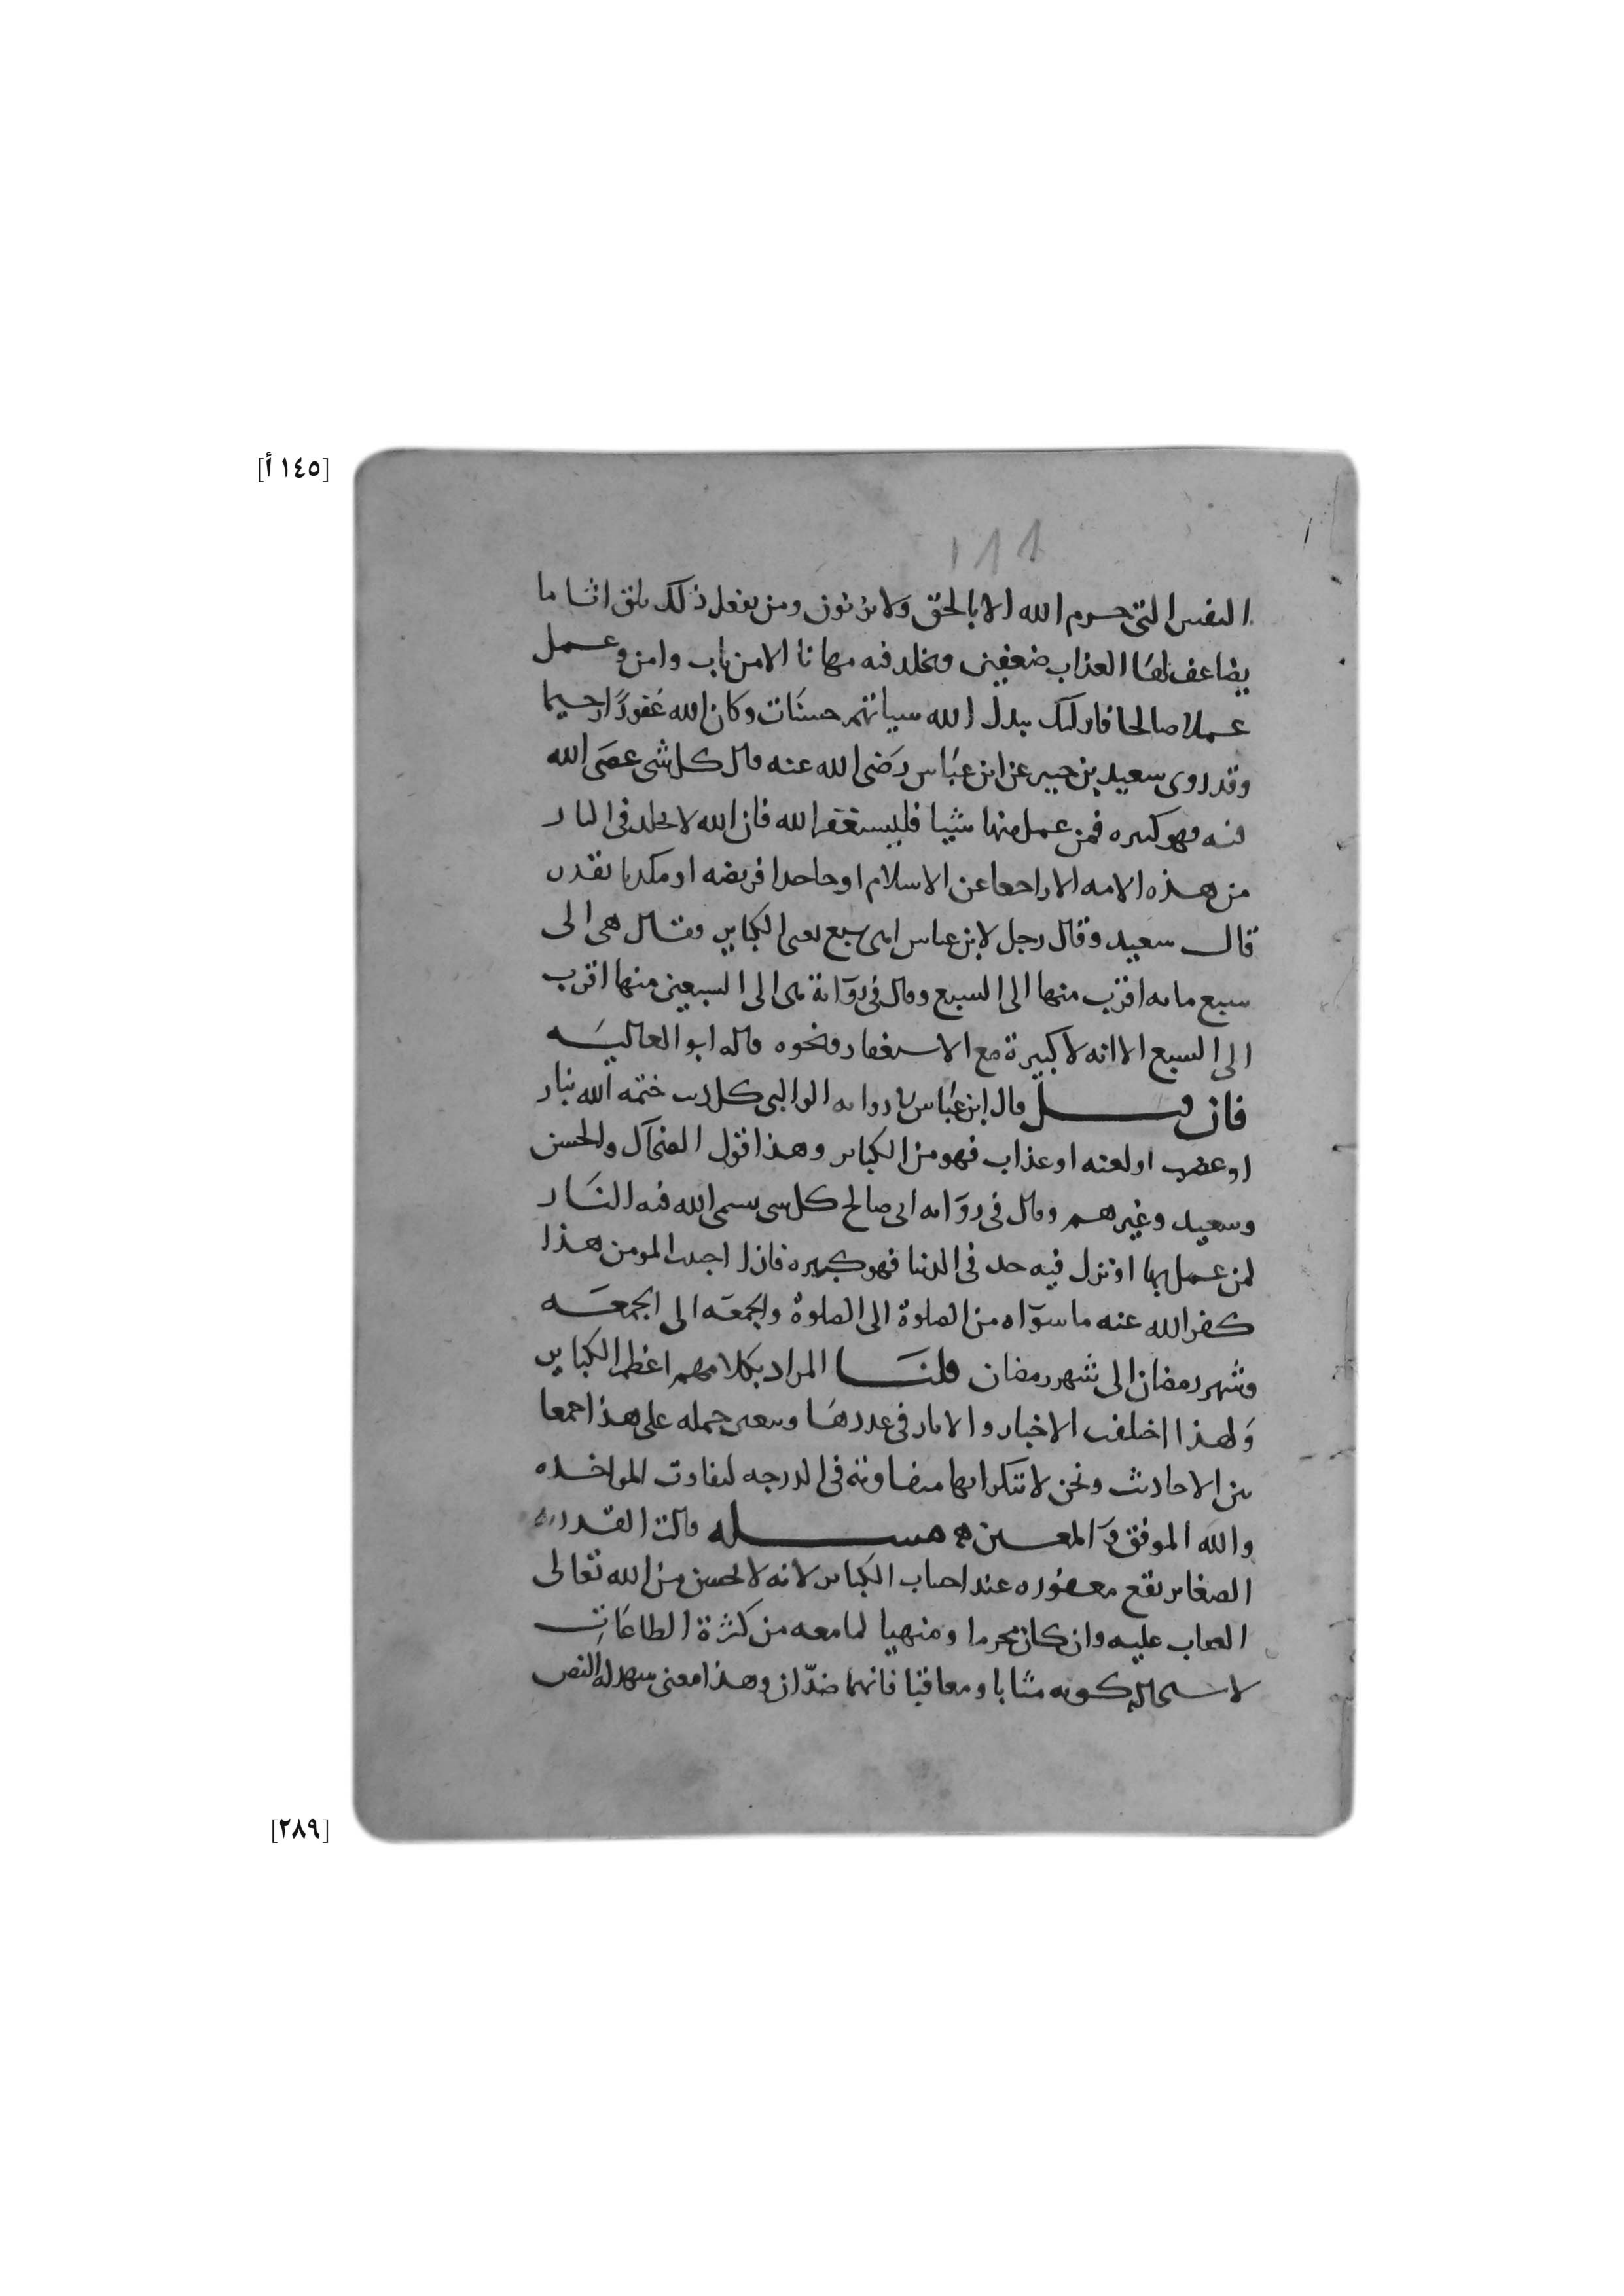 [١٤٥ أ]
١١١
النفس التي حرم الله الا بالحق ولا يزنون ومن يفعل ذلك يلق اثاما
يضاعف له العذاب ضعفين ويخلد فيه مهانا الا من تاب وامن وعمل
عملا صالحا فاولئك يبدل الله سياتهم حسنات وكان الله غفورًا رحيما
وقد روى سعيد بن جبير عن ابن عبّاس رَضى الله عنه قال كل شى عصَى الله
فيه فهو كبيره فمن عمل منها شيا فليستغفر الله فان الله لا يخلد فى النار
من هذه الامه الا راجعا عن الاسلام او جاحدا فريضه او مكذبا بقدر
قال سعيد وقال رجل لابن عباس اهى سبع يعنى الكباير فقال هى الى
سبع مايه اقرب منها الى السبع وقال فى روَاية هى الى السبعين منها اقرب
الى السبع الا انه لا كبيرة مع الاستغفار ونحوه قاله ابو العاليَه
فان قيل قال ابن عبّاس فى روايه الوالبى كل ذنب ختمه الله بنار
او غضب او لعنه او عذاب فهو من الكباير وهذا قول الضحّاك والحسن
وسعيد وغيرهم وقال فى روَايه ابى صالح كل شى سمى الله فيه النَار
لمن عمل بها او نزل فيه حد فى الدنيا فهو كبيره فاذا اجتنب المومن هذا
كفر الله عنه ما سوَاه من الصلوة الى الصلوة والجمعَه الى الجمعَه
وشهر رمضان الى شهر رمضان قلنَا المراد بكلامهم اعظم الكباير
وَلهذا اختلفت الاخبار والاثار فى عددهَا وتعين حمله على هذا جمعا
بين الاحاديث ونحن لا ننكر انها متفاوته فى الدرجه لتفاوت المواخذه
والله الموفق وَ المعين ه مسله قالت القدريه
الصغاير تقع مغفوره عند اجتناب الكباير لانه لا يحسن من الله تعَالى
العقاب عليه وان كان محرما ومنهيا لما معه من كثرة الطاعَاتِ
لاستحاله كونه مثابا ومعاقبا فانهما ضدّان وهذا معنى يشهد له النص
[٢٨٩]